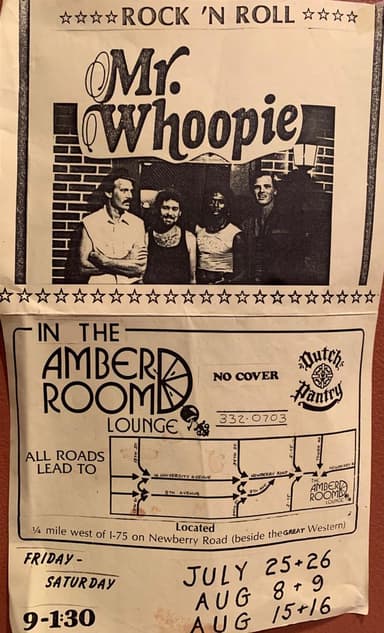 ☆☆☆☆ ROCK 'N ROLL ☆☆☆☆
Mr.
Whoopie
IN THE
AMBER
ROOM
LOUNGE
NO COVER
332-0703
Dutch
Pantry
ALL ROADS
LEAD TO
W. UNIVERSITY AVENUE
NEWBERRY ROAD
8TH AVENUE
I-75
THE
AMBER
ROOM
LOUNGE
Located
¼ mile west of I-75 on Newberry Road (beside the GREAT Western)
FRIDAY -
SATURDAY
9-1:30
JULY 25+26
AUG 8+9
AUG 15+16